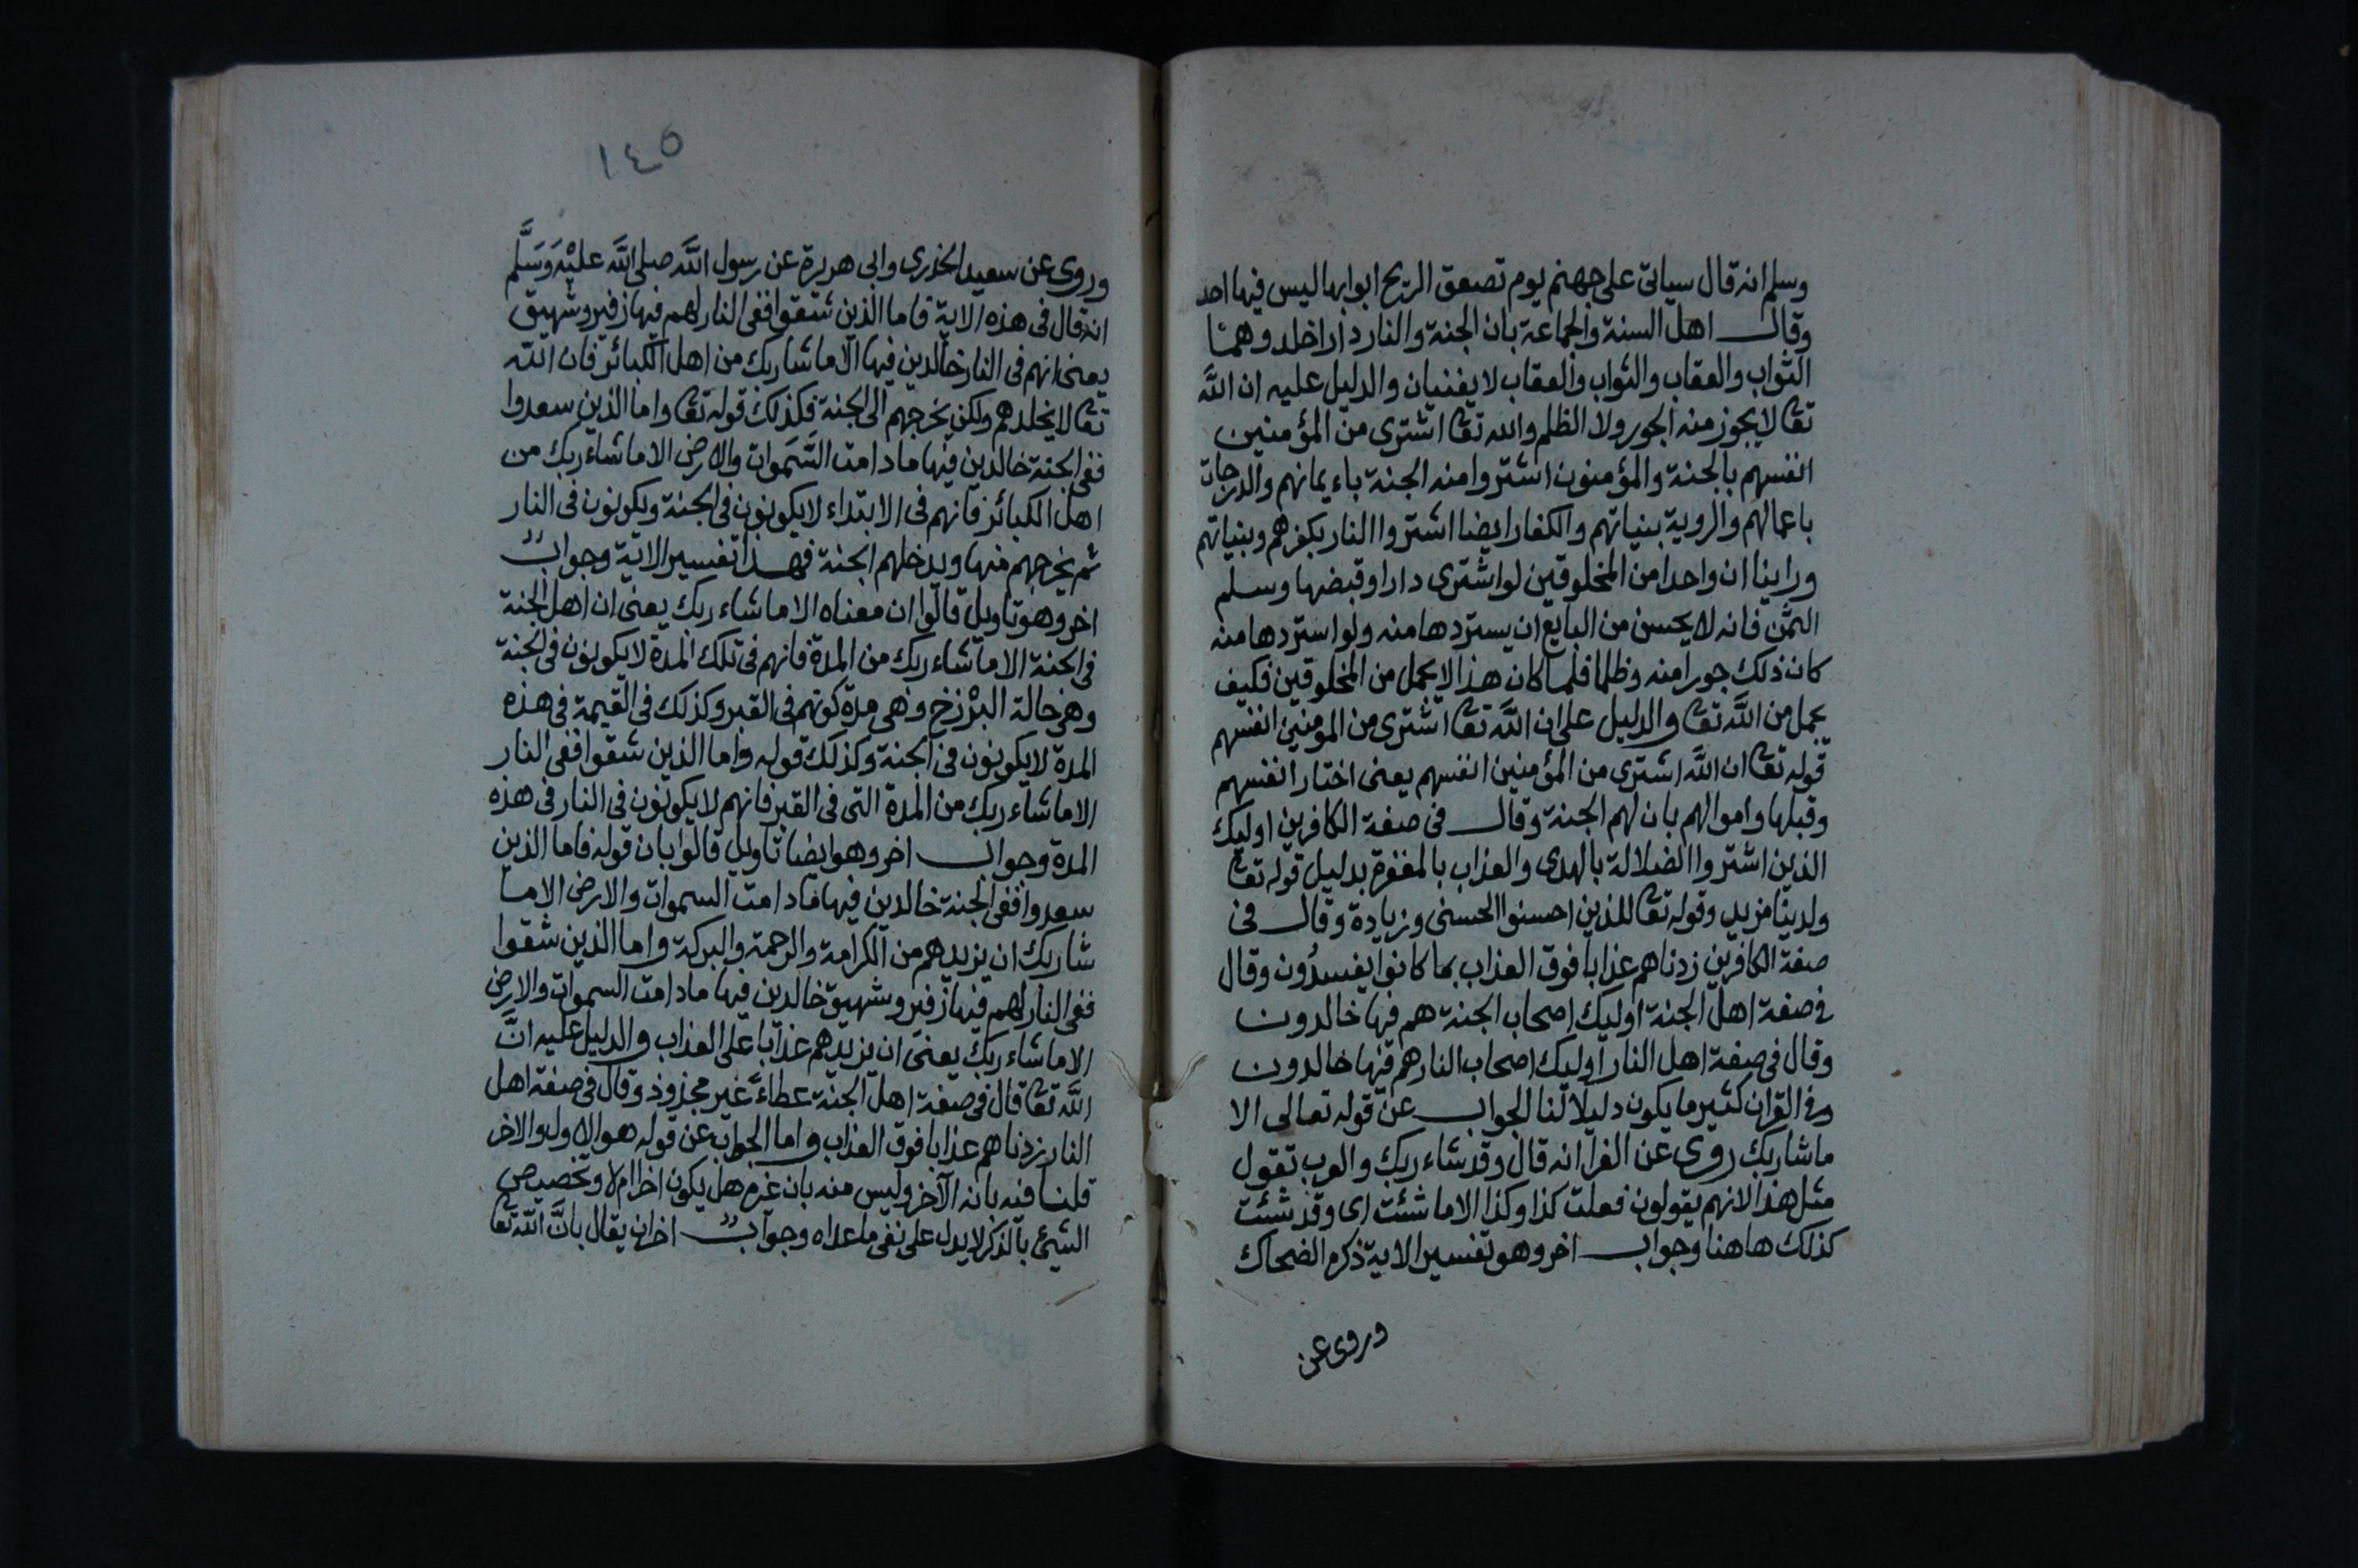 وسلم انه قال سياتى على جهنم يوم تصعق الريح ابوابها ليس فيها احد
وقال اهل السنة والجماعة بان الجنة والنار دارا خلد وهما
الثواب والعقاب والثواب والعقاب لا يفنيان والدليل عليه ان الله
تعا لا يجوز منه الجور ولا الظلم والله تعا اشترى من المؤمنين
انفسهم بالجنة والمؤمنون اشتروا منه الجنة باءيمانهم والدرجات
باعمالهم والروية بنياتهم والكفار ايضا اشتروا النار بكفرهم وبنياتهم
وراينا ان واحدا من المخلوقين لو اشترى دارا وقبضها وسلم
الثمن فانه لا يحسن من البايع ان يستردها منه ولو استردها منه
كان ذلك جورا منه وظلما فلما كان هذا لا يجمل من المخلوقين فكيف
يجمل من الله تعا والدليل على ان الله تعا اشترى من المومنين انفسهم
قوله تعا ان الله اشترى من المؤمنين انفسهم يعنى اختار انفسهم
وقبلها واموالهم بان لهم الجنة وقال فى صفة الكافرين اوليك
الذين اشتروا الضلالة بالهدى والعذاب بالمغفرة بدليل قوله تعا
ولدينا مزيد وقوله تعا للذين احسنوا الحسنى وزيادة وقال فى
صفة الكافرين زدناهم عذابا فوق العذاب بما كانوا يفسدون وقال
فى صفة اهل الجنة اوليك اصحاب الجنة هم فيها خالدون
وقال فى صفة اهل النار اوليك اصحاب النار هم فيها خالدون
وفى القران كثير ما يكون دليلا لنا الجواب عن قوله تعالى الا
ما شا ربك روى عن الفرا انه قال وقد شاء ربك والعرب تقول
مثل هذا لانهم يقولون فعلت كذا وكذا الا ما شئت اى وقد شئت
كذلك هاهنا وجواب اخر وهو تفسير الاية ذكره الضحاك
وروى عن
١٤٥
وروى عن سعيد الخدرى وابى هريرة عن رسول الله صلى الله عليه وسلم
انه قال فى هذه الاية فاما الذين شقوا ففى النار لهم فيها زفير وشهيق
يعنى انهم فى النار خالدين فيها الا ما شا ربك من اهل الكبائر فان الله
تعا لا يخلدهم ولكن يخرجهم الى الجنة فكذلك قوله تعا واما الذين سعدوا
ففى الجنة خالدين فيها ما دامت السموات والارض الا ما شاء ربك من
اهل الكبائر فانهم فى الابتداء لا يكونون فى الجنة ويكونون فى النار
ثم يخرجهم منها ويدخلهم الجنة فهذا تفسير الاية وجواب
اخر وهو تاويل قالوا ان معناه الا ما شاء ربك يعنى ان اهل الجنة
فى الجنة الا ما شاء ربك من المدة فانهم فى تلك المدة لا يكونون فى الجنة
وهى حالة البرزخ وهى مدة كونهم فى القبر وكذلك فى القيمة فى هذه
المدة لا يكونون فى الجنة وكذلك قوله واما الذين شقوا ففى النار
الا ما شاء ربك من المدة التى فى القبر فانهم لا يكونون فى النار فى هذه
المدة وجواب اخر وهو ايضا تاويل قالوا بان قوله فاما الذين
سعدوا ففى الجنة خالدين فيها ما دامت السموات والارض الا ما
شا ربك ان يزيدهم من الكرامة والرحمة والبركة واما الذين شقوا
ففى النار لهم فيها زفير وشهيق خالدين فيها ما دامت السموات والارض
الا ما شاء ربك يعنى ان يزيدهم عذابا على العذاب والدليل عليه ان
الله تعا قال فى صفة اهل الجنة عطاء غير مجذوذ وقال فى صفة اهل
النار زدناهم عذابا فوق العذاب واما الجواب عن قوله هو الاول والاخر
قلنا فيه بانه الآخر وليس منه بان غيره هل يكون اخرا ام لا وتخصيص
الشيئ بالذكر لا يدل على نفى ما عداه وجواب اخر ان يقال بان الله تعا